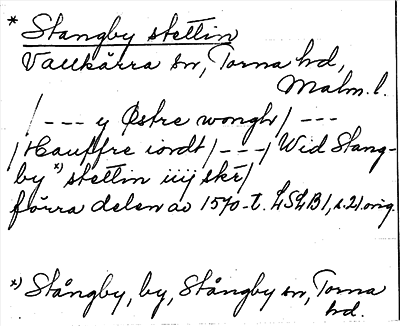 * Stangby stettin
Vallkärra sn, Torna hd,
Malm. l.
/ --- y Østre wongh / ---
/ Hauffre iordt / --- / Wid Stang-
by *) stettin iiij skr/
förra delen av 1570-t. LSLB 1, s. 21 orig.
*) Stångby, by, Stångby sn, Torna
hd.